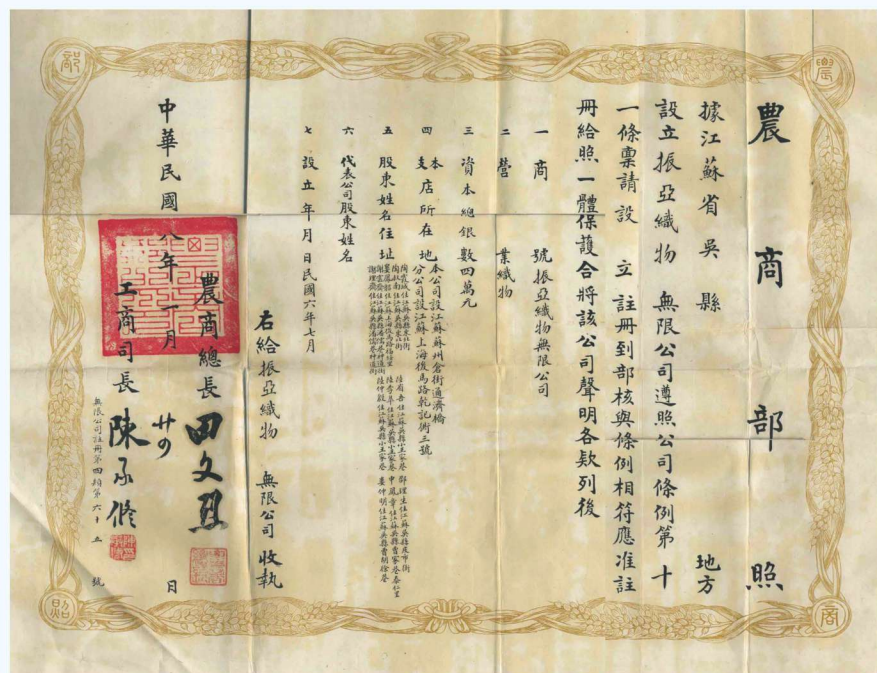 農商部照
據江蘇省吳縣 地方
設立振亞織物 無限公司遵照公司條例第 十
一條稟請設 立 註冊到部核與條例相符應准註
冊給照一體保護合將該公司聲明各欵列後
一 商 號振亞織物無限公司
二 營 業織物
三 資本總銀數四萬元
四 本支店所在地 本公司設江蘇蘇州倉街通濟橋
分公司設江蘇上海後馬路乾記衖三號
五 股東姓名住址
六 代表公司股東姓名
七 設立年月日民國六年七月
右給振亞織物 無限公司 收執
農商總長 田文烈
中華民國八年一月 廿四 日
工商司長 陳承修
無限公司註冊第四類第六十五 號
部
農
照
商